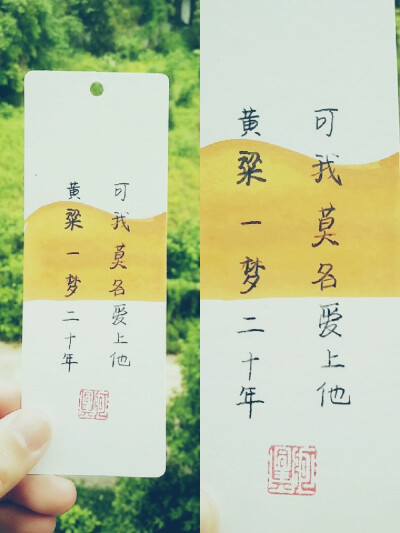 可我莫名爱上他
黄粱一梦二十年
可我莫名爱上他
黄粱一梦二十年